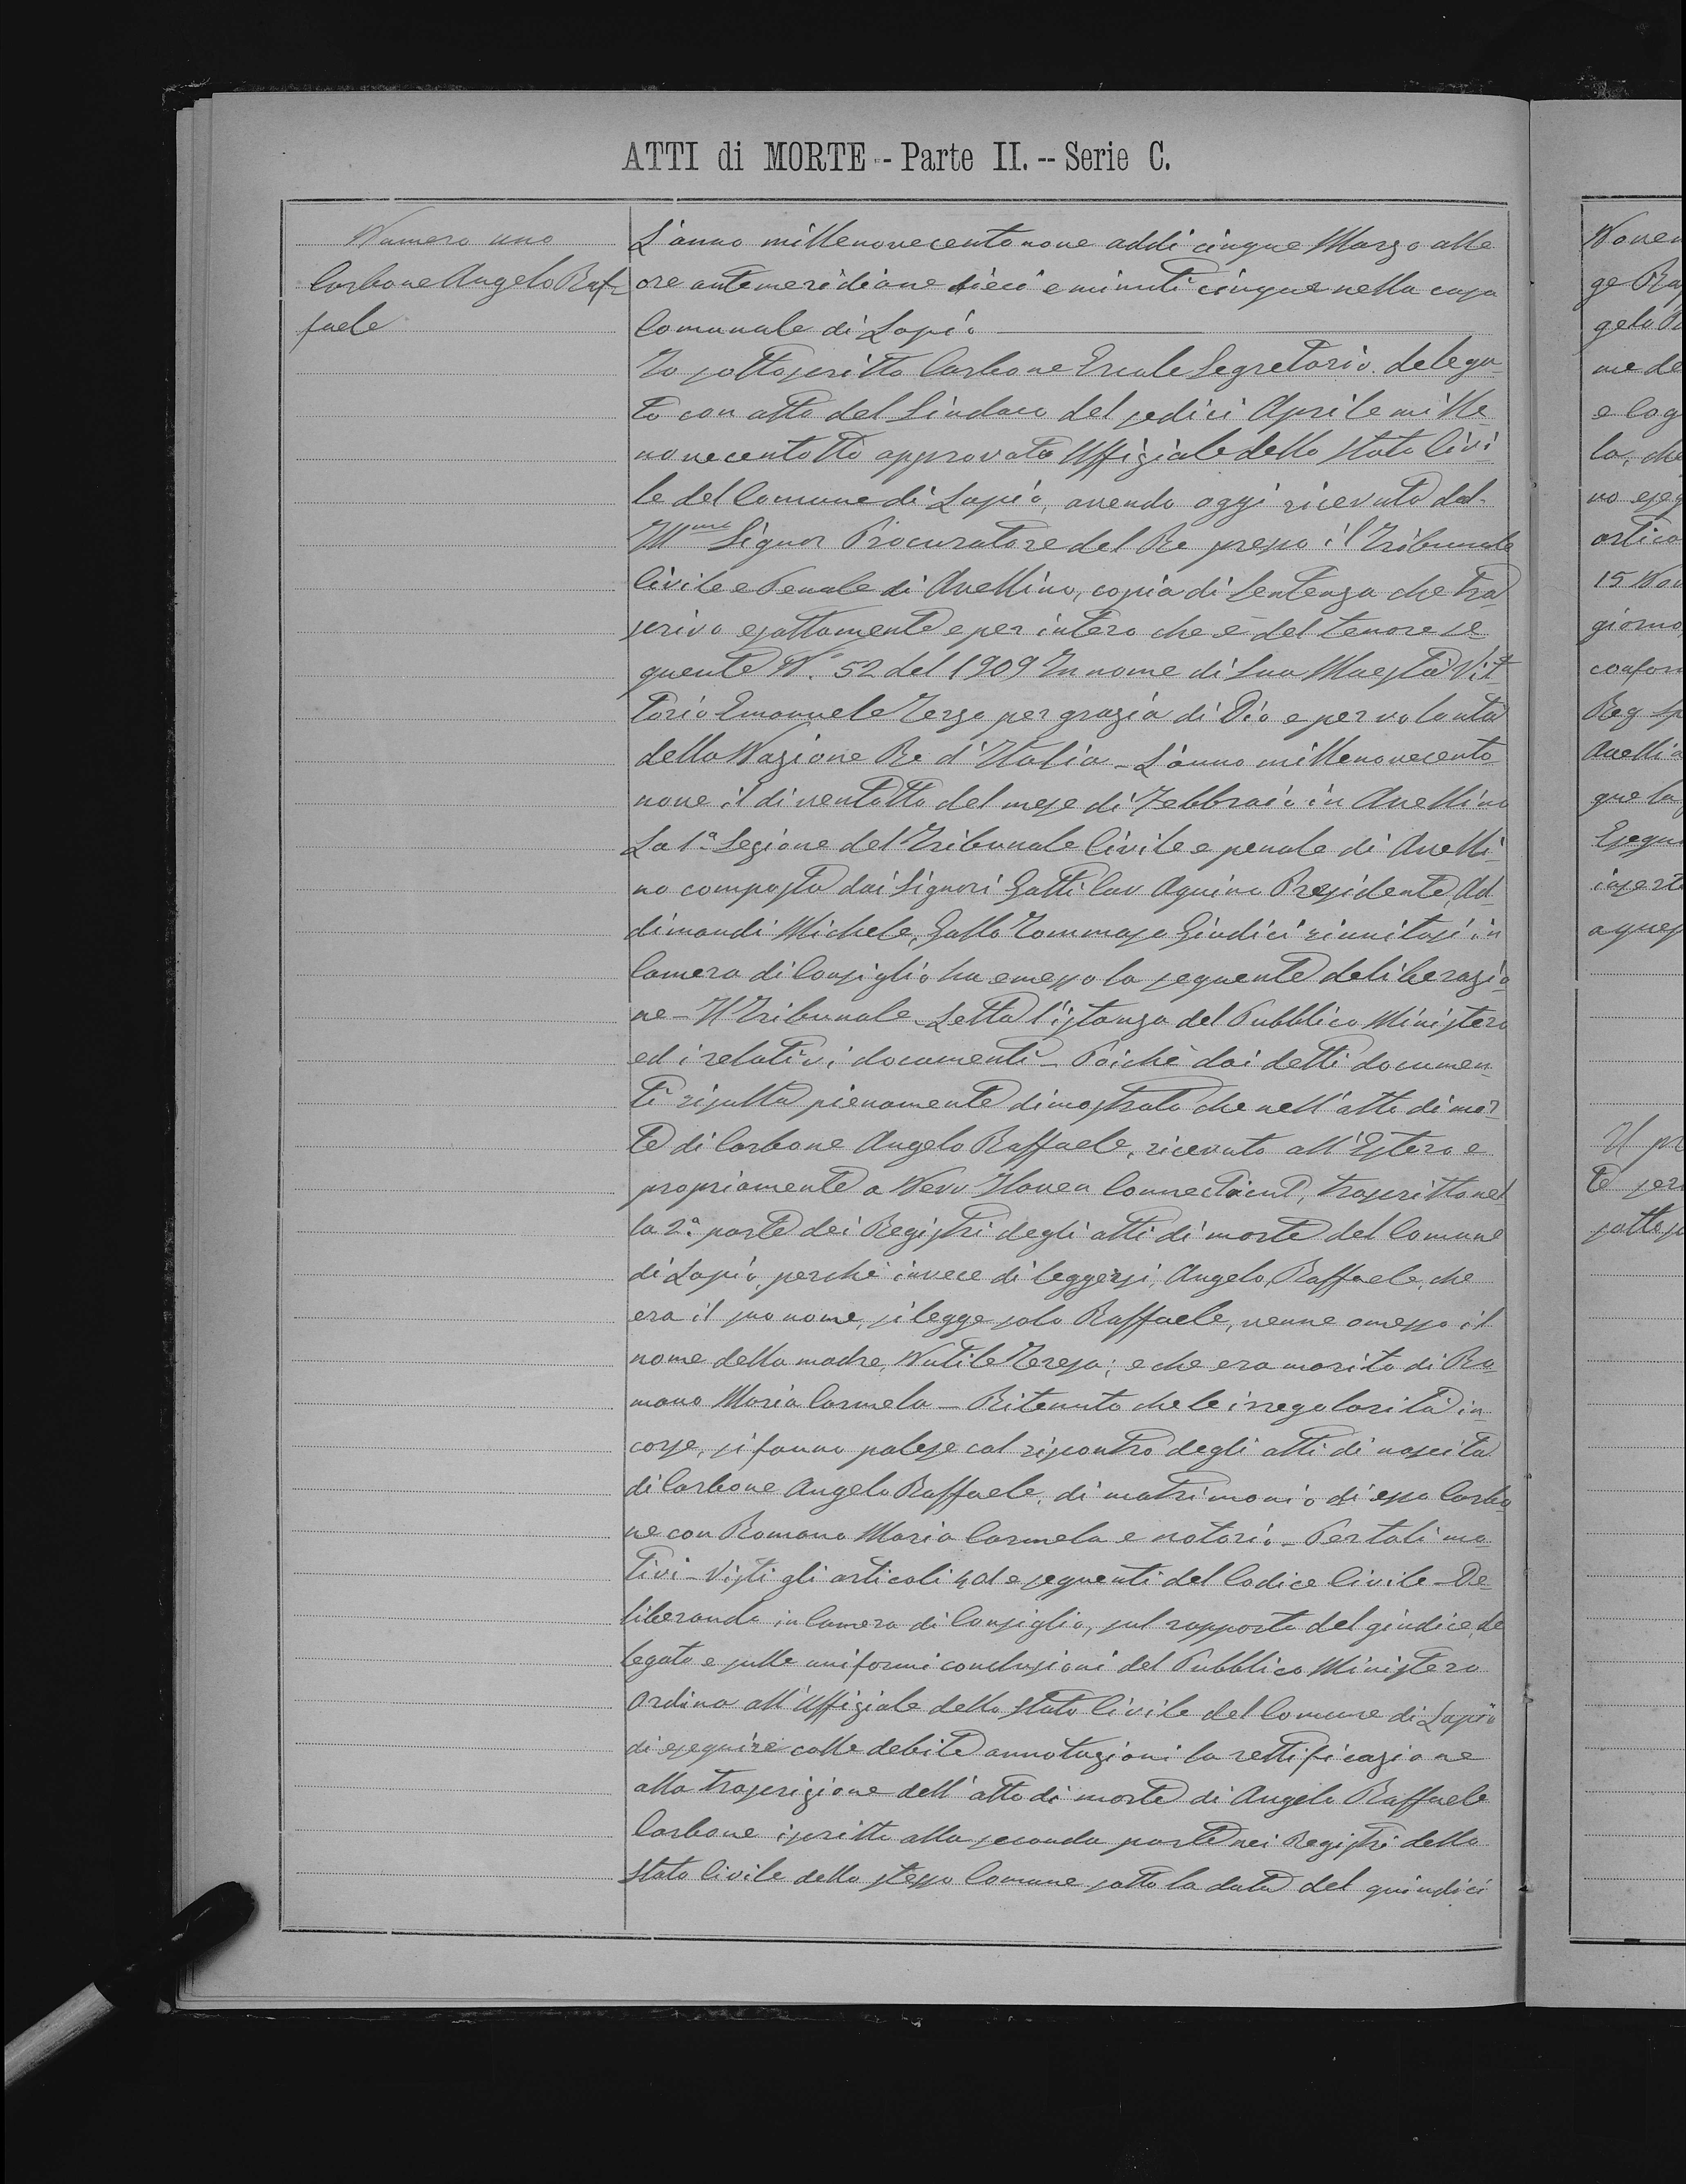 ATTI di MORTE -- Parte II. -- Serie C.
Numero uno
Carbone Angelo Raf=
faele
L'anno millenovecentonove addi cinque Marzo alle
ore antemeridiane dieci e minuti cinque nella casa
Comunale di Lapio
Io sottoscritto Carbone Ercole Segretario delega-
to con atto del Sindaco del sedici Aprile mille
novecentotto approvato Uffiziale dello Stato Civi
le del Comune di Lapio, avendo oggi ricevuto dal
Ill.mo Signor Procuratore del Re presso il Tribunale
Civile e Penale di Avellino, copia di Sentenza che tra
scrivo esattamente e per intero che è del tenore se
guente N. 52 del 1909 In nome di Sua Maestà Vit
torio Emanuele Terzo per grazia di Dio e per volontà
della Nazione Re d'Italia - L'anno millenovecento
nove il di ventotto del mese di Febbraio in Avellino
La 1ª Sezione del Tribunale Civile e penale di Avelli
no composta dai Signori Gatti Cav Aquino Presidente, Ad
dimandi Michele, Gallo Tommaso Giudici riunitasi in
Camera di Consiglio ha emesso la seguente deliberazio
ne - Il Tribunale - Letta l'istanza del Pubblico Ministero
ed i relativi documenti - Poichè dai detti documen
ti risulta pienamente dimostrato che nell'atto di mor
te di Carbone Angelo Raffaele, ricevuto all'Estero e
propriamente a New Haven Connecticut, trascritto nel
la 2ª parte dei Registri degli atti di morte del Comune
di Lapio, perchè invece di leggersi, Angelo, Raffaele, che
era il suo nome, si legge solo Raffaele, venne omesso il
nome della madre, Nutile Teresa; e che era marito di Ro
mano Maria Carmela - Ritenuto che le irregolarità in
corse, si fanno palese col riscontro degli atti di nascita
di Carbone Angelo Raffaele, di matrimonio di esso Carbo
ne con Romano Maria Carmela e notorio - Per tali mo
tivi - Visti gli articoli 401 e seguenti del Codice Civile - De
liberando in Camera di Consiglio, sul rapporto del giudice de
legato e sulle uniformi conclusioni del Pubblico Ministero
Ordina all'Uffiziale dello Stato Civile del Comune di Lapio
di eseguire colle debite annotazioni la rettificazione
alla trascrizione dell'atto di morte di Angelo Raffaele
Carbone iscritto alla seconda parte nei Registri dello
Stato Civile dello stesso Comune sotto la data del quindici
15 Nov
giorno,
Avellin
Il pr